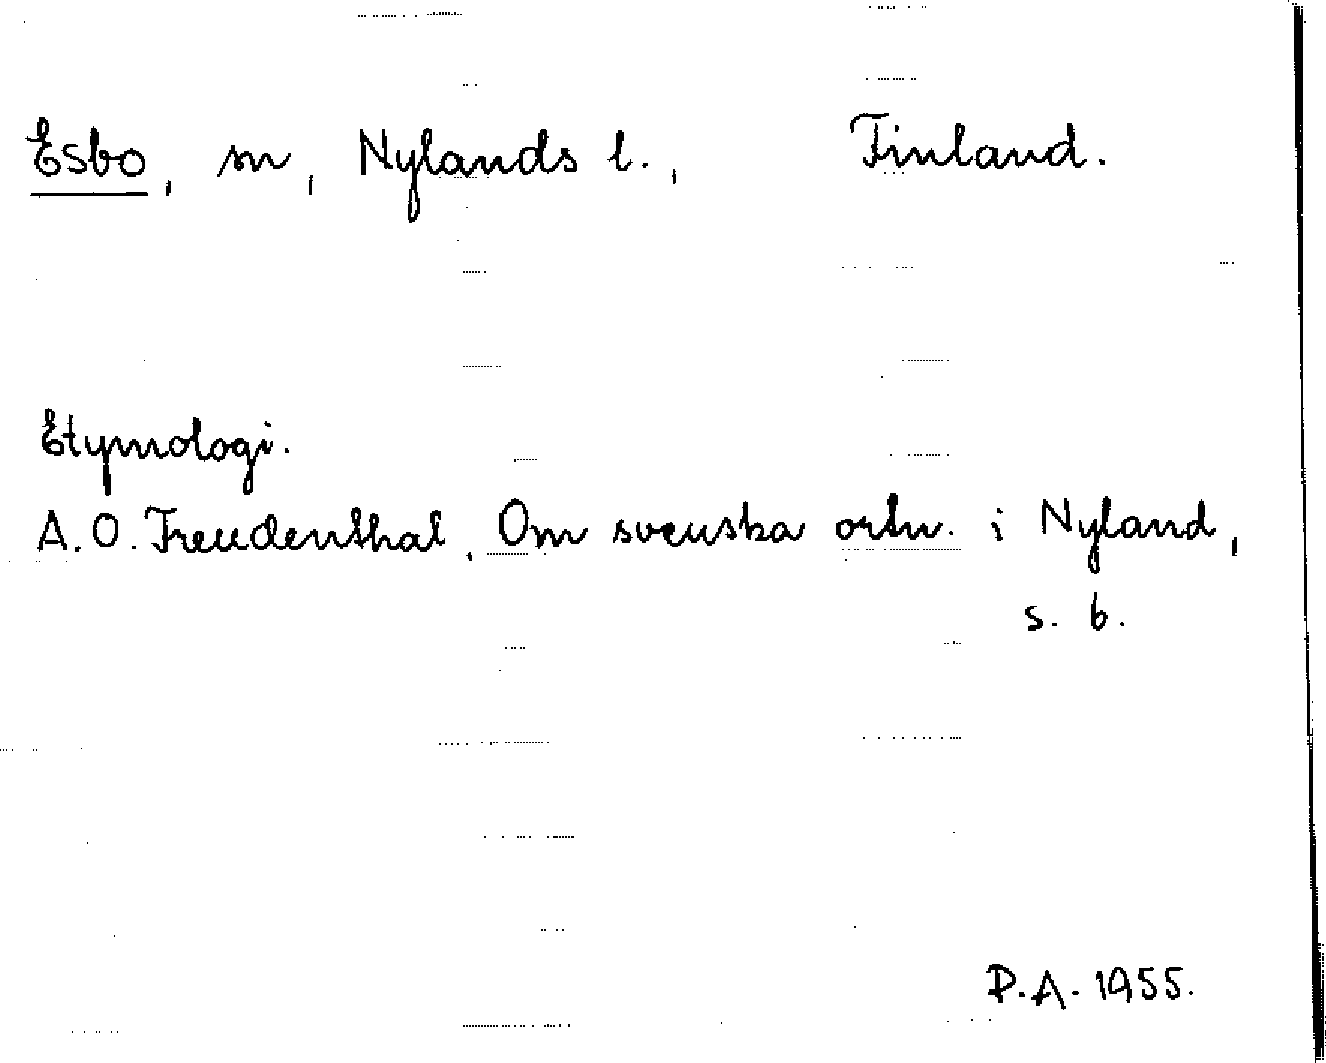 Esbo, sn, Nylands l., Finland.
Etymologi.
A.O. Freudenthal, Om svenska ortn. i Nyland,
s. 6.
P.A. 1955.